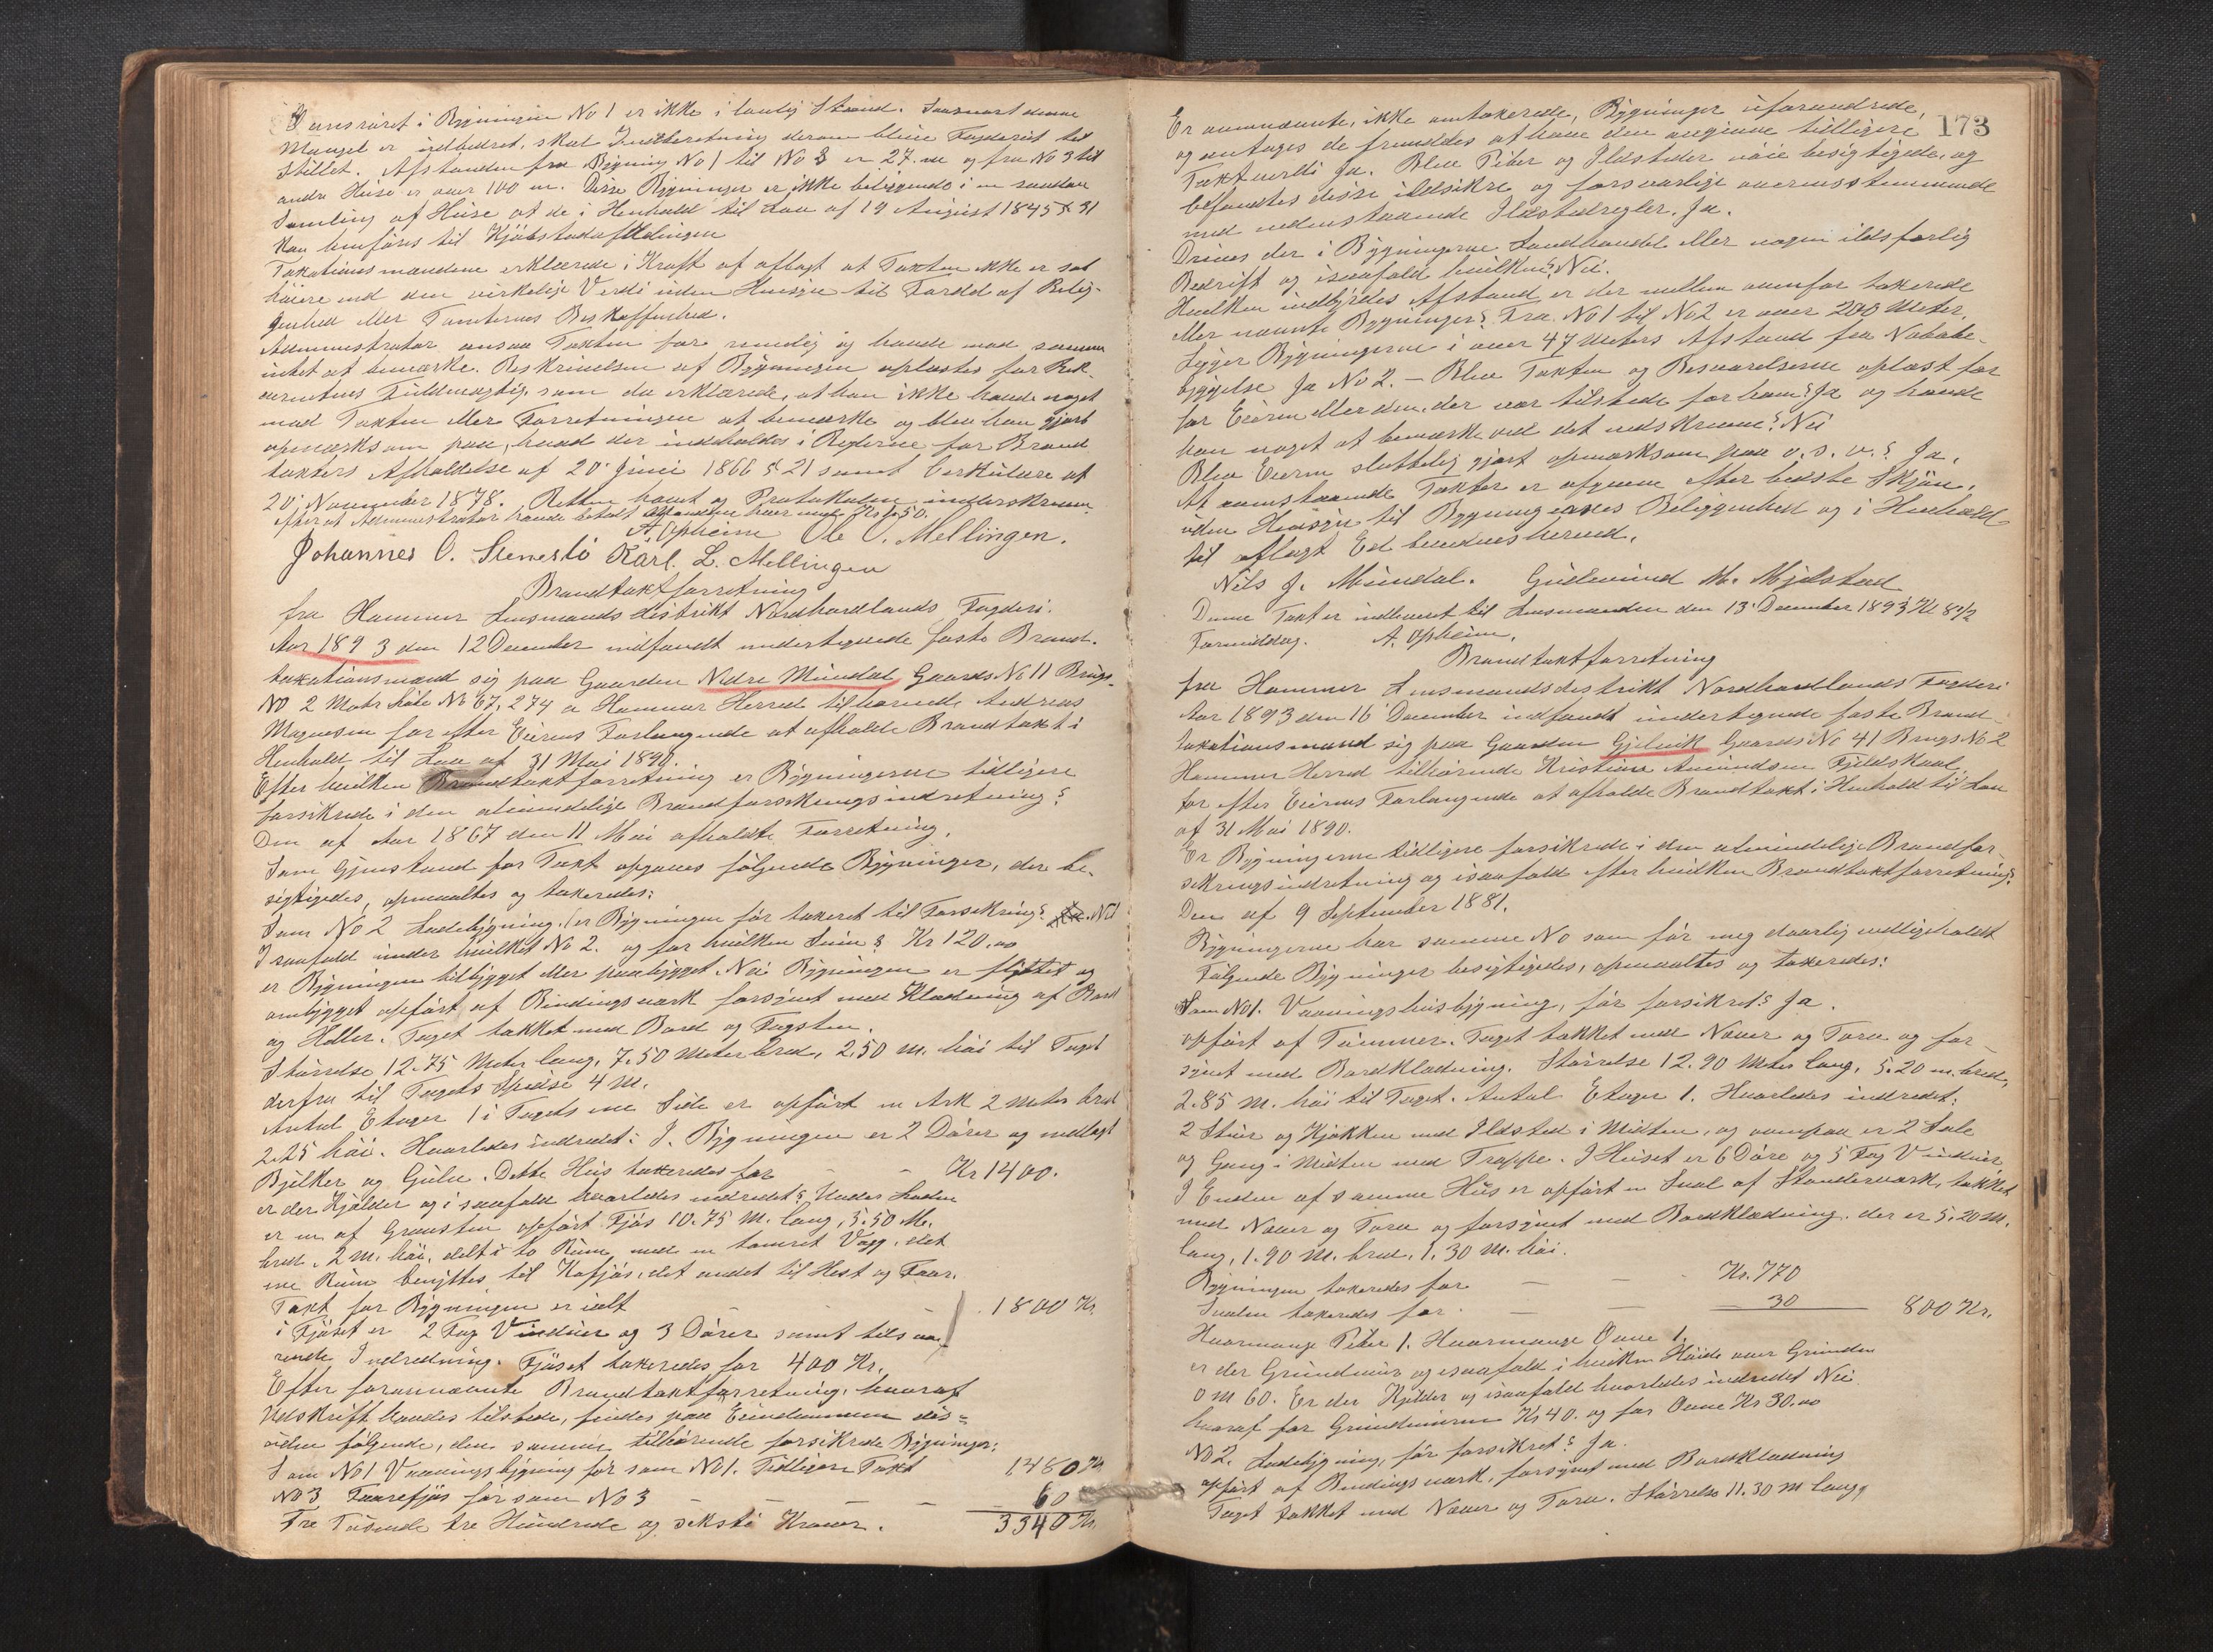 Jernrøret i Bygningen No 1 er ikke i lovlig Stand. Saasnart denne
Mangel er udbedret, skal Indberetning derom blive Fogderiet til-
stillet. Afstanden fra Bygning No 1 til No 3 er 27. m og fra No 3 til
andre Huse er over 100 m. Disse Bygninger er ikke beliggende i en saadan
Samling af Huse at de i Henhold til Lov af 19 August 1845 § 31
kan henføres til Kjøbstadafdelingen
Taxationsmændene erklærede i Kraft af aflagt at Taxten ikke er sat
høiere end den virkelige Verdi uden Hensyn til Fordel af Belig-
genhed eller Tomternes Beskaffenhed.
Administrator ansaa Taxten for rimelig og havde mod samme
intet at bemærke. Beskrivelsen af Bygningen oplæstes for Rek-
verentens Fuldmægtig, som da erklærede, at han ikke havde noget
mod Taxten eller Forretningen at bemærke og blev han gjort
opmærksom paa, hvad der indeholdes i Reglerne for Brand
taxters Afholdelse af 20' Juni 1866 § 21 samt Cerkulære af
20' November 1878. Retten hævet og Protokolen underskreven
efter at Administrator havde betalt Mændene hver med Kr 1,50.
A. Opheim Ole O. Mellingen.
Johannes O. Stenestø Karl. L. Mellingen
Brandtaxtforretning
fra Hammer Lensmandsdistrikt Nordhordlands Fogderi.
Aar 1893 den 12 December indfandt undertegnede faste Brand-
taxationsmænd sig paa Gaarden Nedre Mundal, Gaards No 11 Brugs-
No 2 Matr Løbe No 67, 274 a Hammer Herred tilhørende Andreas
Magnesen for efter Eierens Forlangende at afholde Brandtaxt i
Henhold til Lov af 31 Mai 1890.
Efter hvilken Brandtaxtforretning er Bygningerne tidligere
forsikrede i den almindelige Brandforsikringsindretning?
Den af Aar 1867 den 11 Mai afholdte Forretning.
Som Gjenstand for Taxt opgaves følgende Bygninger, der be-
sigtigedes, opmaaltes og taxeredes:
Som No 2 Ladebygning. (er Bygningen før taxeret til Forsikring? Nei
I saafald under hvilket No 2. og for hvilken Sum? Kr 120.00
er Bygningen tilbygget eller paabygget. Nei Bygningen er flyttet og
ombygget opført af Bindingsværk forsynet med Klædning af Bord
og Heller. Taget tækket med Bord og Tagsten.
Størrelse 12.75 Meter lang, 7.50 Meter bred, 2.50 m. høi til Taget
derfra til Tagets Spidse 4 M.
Antal Etager 1 i Tagets ene Side er opført en Ark 2 Meter bred
2.25 høi. Hvorledes indredet: I. Bygningen er 2 Dører og nedlagt
Bjelker og Gulv. Dette Hus taxeredes for – – Kr 1400.
er der Kjelder og i saafald hvorledes indredet? Under Laden
er en af Graasten opført Fjøs 10.75 M. lang, 5.50 M.
bred, 2 m. høi, delt i to Rum, med en tømret Væg. det
ene Rum benyttes til Kofjøs, det andet til Hest og Faar.
Taxt for Bygningen er ialt – 1800 Kr
i Fjøset er 2 Fag Vinduer og 3 Dører samt tilsva-
rende Indredning. Fjøset taxeredes for 400 Kr.
Efter forannævnte Brandtaxtforretning, hvoraf
Udskrift havdes tilstede, findes paa Eiendommen des-
uden følgende, den samme tilhørende forsikrede Bygninger:
Som No 1 Vaaningsbygning før som No 1. Tidligere Taxt 1480 Kr
No 3 Faarefjøs før som No 3 – – – – 60
Tre Tusende tre Hundrede og seksti Kroner. 3340 Kr.
173
Er ovennævnte, ikke omtaxerede, Bygninger uforandrede,
og antages de fremdeles at have den angivne tidligere
Taxtverdi Ja. Blev Piber og Ildsteder nøie besigtigede, og
befandtes disse ildsikre og forsvarlige overensstemmende
med nedenstaaende Ildstedregler. Ja.
Drives der i Bygningerne Landhandel eller nogen ildsfarlig
Bedrift og isaafald hvilken? Nei.
Hvilken indbyrdes Afstand er der mellem ovenfor taxerede
eller nævnte Bygninger? Fra No 1 til No 2 er over 200 Meter.
Ligger Bygningerne i over 47 Meters Afstand fra Nabobe-
byggelse Ja No 2. – Blev Taxten og Besvarelserne oplæst for
for Eieren eller den, der var tilstede for ham? Ja og havde
han noget at bemærke ved det nedskrevne? Nei
Blev Eieren sluttelig gjort opmærksom paa o. s. v.? Ja.
At ovenstaaende Taxter er afgivne efter bedste Skjøn,
uden Hensyn til Bygningernes Beliggenhed og i Henhold
til aflagt Ed bevidnes herved.
Nils J. Mundal. Gudmund M. Mjelstad
Denne Taxt er indleveret til Lensmanden den 13' December 1893 Kl 8 1/2
Formiddag. A. Opheim.
Brandtaxtforretning
fra Hammer Lensmandsdestrikt Nordhordlands Fogderi
Aar 1893 den 16 December indfandt undertegnede faste Brand-
taxationsmænd sig paa Gaarden Gjelvik Gaards No 41 Brugs No 2
Hammer Herred tilhørende Kristian Amundsen Fjeldskaal
for efter Eierens Forlangende at afholde Brandtaxt i Henhold til Lov
af 31 Mai 1890.
Er Bygningerne tidligere forsikrede i den almindelige Brandfor-
sikringsindretning og isaafald efter hvilken Brandtaxtforretning?
Den af 9 September 1881.
Bygningerne har samme No som før meg daarlig vedligeholdt
Følgende Bygninger besigtigedes, opmaaltes og taxeredes:
Som No 1. Vaaningshusbygning, før forsikret? Ja.
opført af Tømmer. Taget tækket med Næver og Torv og for-
synet med Bordklædning. Størrelse 12.90 Meter lang, 5.20 m. bred,
2.85 M. høi til Taget. Antal Etager 1. Hvorledes indredet:
2 Stuer og Kjøkken med Ildsted i Midten, og ovenpaa er 2 Sale
og Gang i Midten med Trappe. I Huset er 6 Døre og 5 Fag Vinduer
I Enden af samme Hus er opført en Sval af Standerværk, tækket
med Næver og Torv og forsynet med Bordklædning. der er 5.20 M.
lang, 1.90 M. bred, 1.30 M. høi.
Bygningen taxeredes for – – Kr. 770
Svalen taxeredes for – – 30 800 Kr.
Hvormange Piber 1. Hvormange Ovne 1.
er der Grundmur og isaafald i hvilken Høide over Grunden
0 m 60. Er der Kjelder og isaafald hvorledes indredet Nei.
hvoraf for Grundmuren Kr 40. og for Ovne Kr 30.00
No 2. Ladebygning, før forsikret? Ja.
opført af Bindingsværk, forsynet med Bordklædning
Taget tækket med Næver og Torv. Størrelse 11.30 M lang,